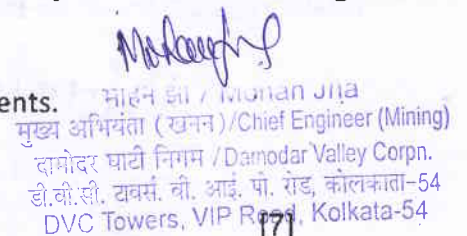 ents.
मोहन झा / Mohan Jha
मुख्य अभियंता (खनन)/Chief Engineer (Mining)
दामोदर घाटी निगम /Damodar Valley Corpn.
डी.वी.सी. टावर्स. वी. आई. पी. रोड, कोलकाता-54
DVC Towers, VIP Road, Kolkata-54
[7]